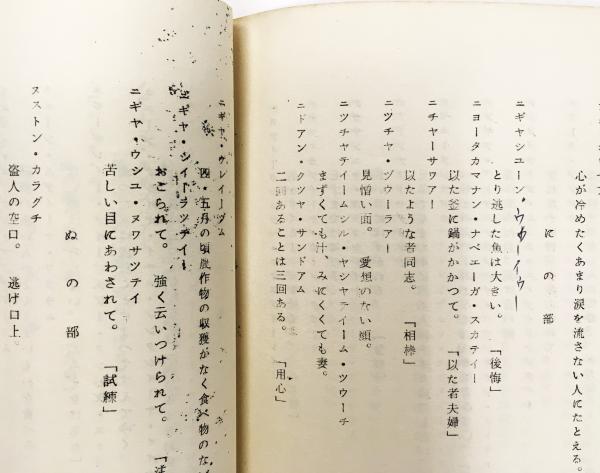 心が冷めたくあまり涙を流さない人にたとえる。
にの部
ニギヤシユーン・ウホーイウー
とり逃した魚は大きい。「後悔」
ニヨータカマナン・ナベエーガ・スカテイー
以た釜に鍋がかかつて。「以た者夫婦」
ニチヤーサワアー
以たような者同志。「相棒」
ニツチヤ・ヅウーラアー
見憎い面。愛想のない顔。
ニツチヤテイームシル・ヤシヤテイーム・ツウーチ
まずくても汁、みにくくても妻。
ニドアン・クツヤ・サンドアム
二回あることは三回ある。「用心」
ニギヤ・ウレイーヅム
四・五月の頃農作物の収獲がなく食べ物のな
ニギヤ・シイトラツテイー
おこられて。強く云いつけられて。
ニギヤ・ウシユ・ヌワサツテイ
苦しい目にあわされて。「試練」
ぬの部
ヌストン・カラグチ
盗人の空口。逃げ口上。